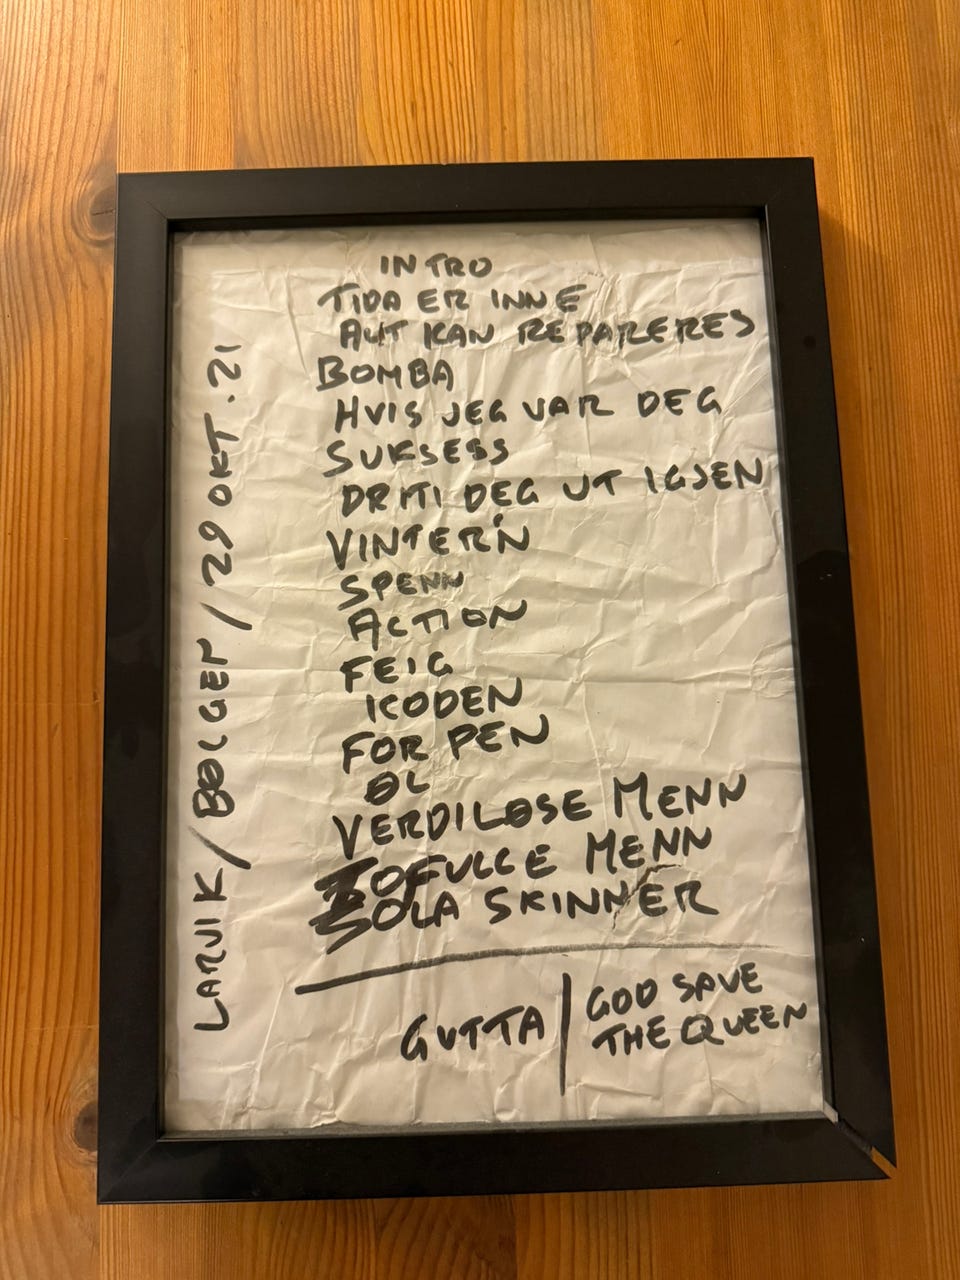 INTRO
TIDA ER INNE
ALT KAN REPARERES
BOMBA
HVIS JEG VAR DEG
SUKSESS
DRITI DEG UT IGJEN
VINTER'N
SPENN
ACTION
FEIG
KODEN
FOR PEN
ØL
VERDILØSE MENN
SOFULLE MENN
SOLA SKINNER
GUTTA | GOD SAVE
THE QUEEN
LARVIK / BØLGEN / 29 OKT. 21